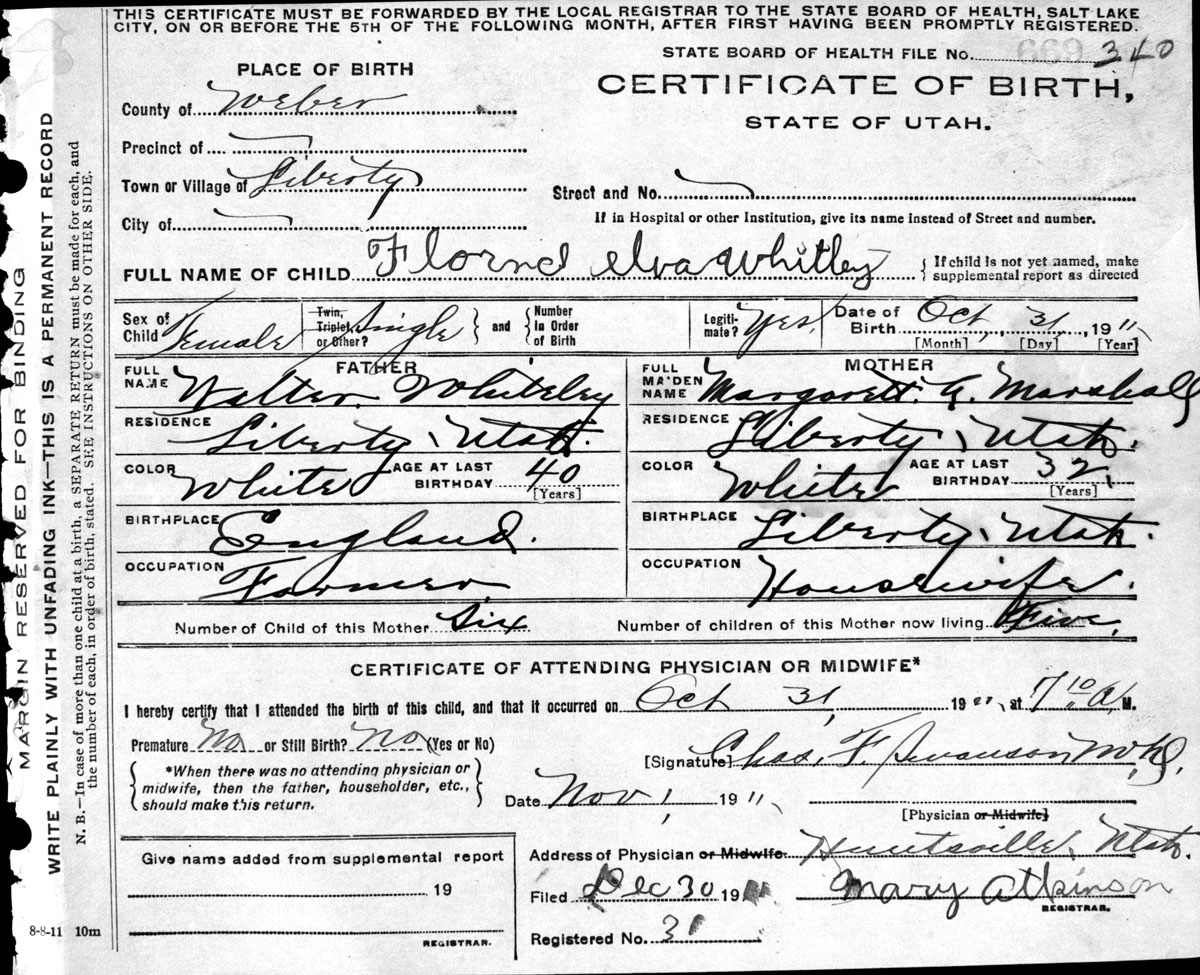 THIS CERTIFICATE MUST BE FORWARDED BY THE LOCAL REGISTRAR TO THE STATE BOARD OF HEALTH, SALT LAKE
CITY, ON OR BEFORE THE 5TH OF THE FOLLOWING MONTH, AFTER FIRST HAVING BEEN PROMPTLY REGISTERED.
STATE BOARD OF HEALTH FILE No. 340
PLACE OF BIRTH
CERTIFICATE OF BIRTH,
STATE OF UTAH.
County of Weber
Precinct of
Town or Village of Liberty
Street and No.
If in Hospital or other Institution, give its name instead of Street and number.
City of
FULL NAME OF CHILD Elva Whitley
{ If child is not yet named, make
supplemental report as directed
Sex of Child Female
Twin, Triplet, or Other? Single } and { Number In Order of Birth
Legiti-mate? Yes.
Date of Birth Oct, 31, 1911,
[Month] [Day] [Year]
FATHER
FULL NAME Walter Whiteley
RESIDENCE Liberty, Utah.
COLOR White
AGE AT LAST BIRTHDAY 40
[Years]
BIRTHPLACE England.
OCCUPATION Farmer.
MOTHER
FULL MAIDEN NAME Margarett. A. Marshall
RESIDENCE Liberty, Utah.
COLOR White
AGE AT LAST BIRTHDAY 32,
[Years]
BIRTHPLACE Liberty, Utah.
OCCUPATION Housewife.
Number of Child of this Mother Six
Number of children of this Mother now living Five,
CERTIFICATE OF ATTENDING PHYSICIAN OR MIDWIFE*
I hereby certify that I attended the birth of this child, and that it occurred on Oct 31, 1911, at 7 10 A. M.
Premature No or Still Birth? No (Yes or No)
[Signature] Chas. F. Swanson M.D.
{ *When there was no attending physician or
midwife, then the father, householder, etc.,
should make this return. }
Date Nov, 1, 1911,
[Physician or Midwife]
Give name added from supplemental report
19
REGISTRAR.
Address of Physician or Midwife Huntsville, Utah.
Filed Dec 30 19
Mary Atkinson
REGISTRAR.
Registered No. 31
8-8-11 10m
MARGIN RESERVED FOR BINDING
WRITE PLAINLY WITH UNFADING INK—THIS IS A PERMANENT RECORD
N. B.—In case of more than one child at a birth, a SEPARATE RETURN must be made for each, and
the number of each, in order of birth, stated. SEE INSTRUCTIONS ON OTHER SIDE.